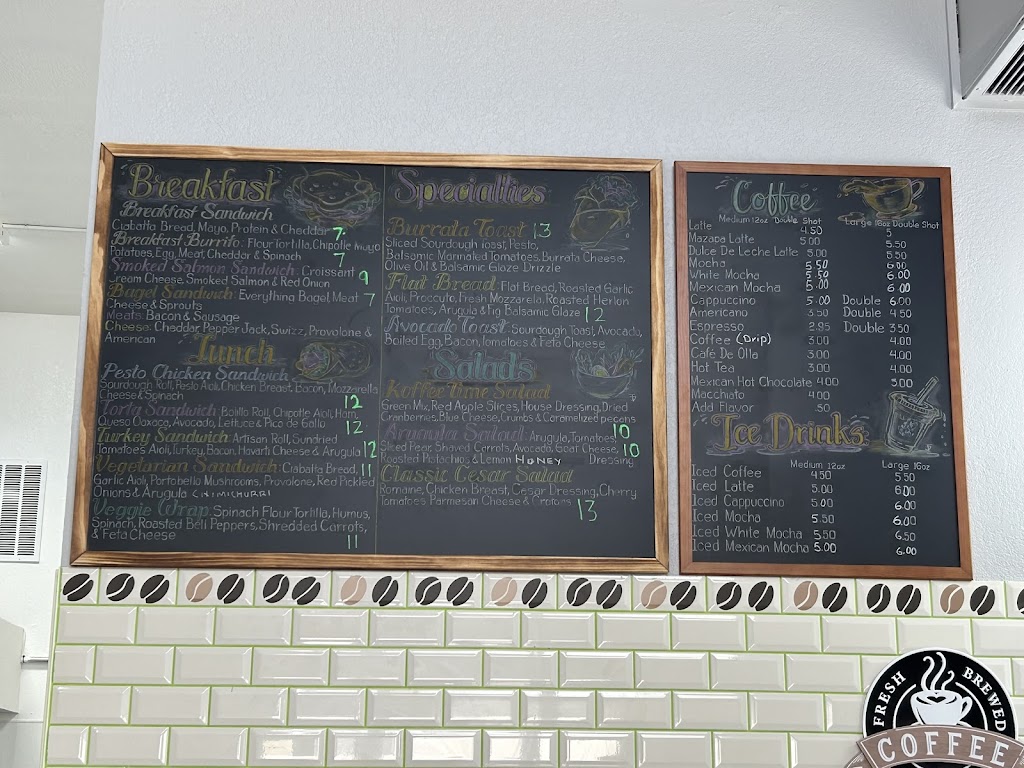 Breakfast
Breakfast Sandwich
Ciabatta Bread, Mayo, Protein & Cheddar 7
Breakfast Burrito: Flour Tortilla, Chipotle Mayo
Potatoes, Egg, Meat, Cheddar & Spinach 7
Smoked Salmon Sandwich: Croissant
Cream Cheese, Smoked Salmon & Red Onion 9
Bagel Sandwich: Everything Bagel, Meat 7
Cheese & Sprouts
Meats: Bacon & Sausage
Cheese: Chaddar, Papper Jack, Swizz, Provolone &
American
Lunch
Pesto Chicken Sandwich
Sourdough Roll, Pesto Aioli, Chicken Breast, Bacon, Mozzarella
Cheese & Spinach 12
Torta Sandwich: Bolillo Roll, Chipotle Aioli, Ham,
Queso Oaxaca, Avocado, Lettuce & Pico de Gallo 12
Turkey Sandwich: Artisan Roll, Sundried
Tomatoes Aioli, Turkey, Bacon, Havarti Cheese & Arugula 12
Vegetarian Sandwich: Ciabatta Bread, 11
Garlic Aioli, Portobello Mushrooms, Provolone, Red Pickled
Onions & Arugula CHIMICHURRI
Veggie Wrap: Spinach Flour Tortilla, Humus,
Spinach, Roasted Bell Peppers, Shredded Carrots,
& Feta Cheese 11
Specialties
Burrata Toast 13
Sliced Sourdough Toast, Pesto,
Balsamic Marinated Tomatoes, Burrata Cheese,
Olive Oil & Balsamic Glaze Drizzle
Flat Bread: Flat Bread, Roasted Garlic
Aioli, Proccuto, Fresh Mozzarella, Roasted Herlon
Tomatoes, Arugula & Fig Balsamic Glaze 12
Avocado Toast: Sourdough Toast, Avocado,
Boiled Egg, Bacon, Tomatoes & Feta Cheese
Salads
Koffee Time Salad
Green Mix, Red Apple Slices, House Dressing, Dried
Cranberries, Blue Cheese, Crumbs & Caramelized pecans
10
Arugula Salad: Arugula, Tomatoes,
Sliced Pears, Shaved Carrots, Avocado, Goat Cheese, 10
Roasted Pistachios, & Lemon HONEY Dressing
Classic Cesar Salad
Romaine, Chicken Breast, Cesar Dressing, Cherry
Tomatoes, Parmesan Cheese & Crotons 13
Coffee
Medium 12oz Double Shot Large 16oz Double Shot
Latte 4.50 5
Mazapa Latte 5.00 5.50
Dulce De Leche Latte 5.00 5.50
Mocha 5.50 6.00
White Mocha 5.50 6.00
Mexican Mocha 5.00 6.00
Cappuccino 5.00 Double 6.00
Americano 3.50 Double 4.50
Espresso 2.95 Double 3.50
Coffee (Drip) 3.00 4.00
Café De Olla 3.00 4.00
Hot Tea 3.00 4.00
Mexican Hot Chocolate 4.00 5.00
Macchiato 4.00
Add Flavor .50
Ice Drinks
Medium 12oz Large 16oz
Iced Coffee 4.50 5.50
Iced Latte 5.00 6.00
Iced Cappuccino 5.00 6.00
Iced Mocha 5.50 6.00
Iced White Mocha 5.50 6.50
Iced Mexican Mocha 5.00 6.00
FRESH BREWED
COFFEE